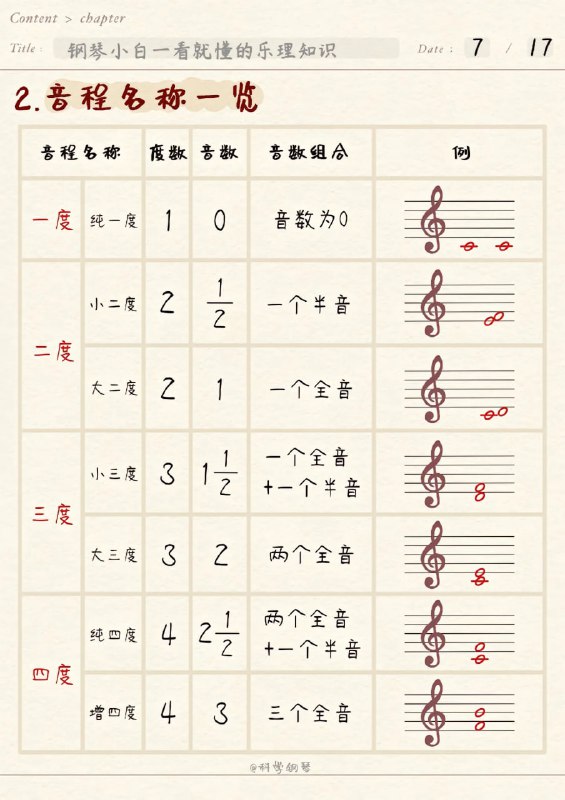 Content > chapter
Title : 钢琴小白一看就懂的乐理知识 Date : 7 / 17
2.音程名称一览
音程名称 度数 音数 音数组合 例
一度 纯一度 1 0 音数为0
二度 小二度 2 1/2 一个半音
大二度 2 1 一个全音
三度 小三度 3 1 1/2 一个全音
+一个半音
大三度 3 2 两个全音
四度 纯四度 4 2 1/2 两个全音
+一个半音
增四度 4 3 三个全音
@科学钢琴